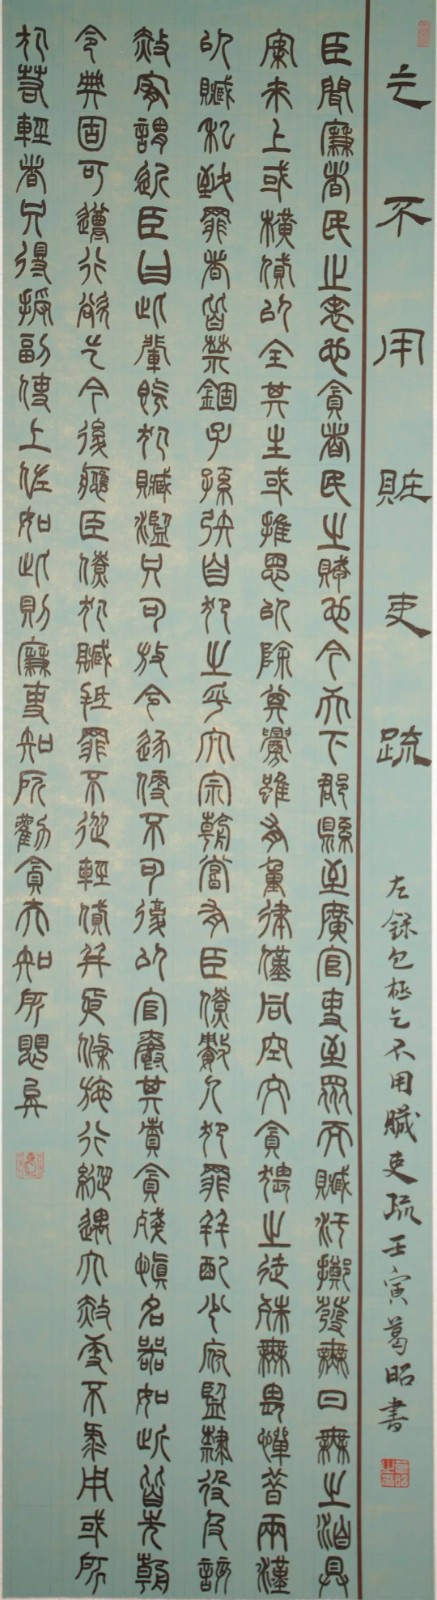 乞不用赃吏疏
左錄包極乞不用贓吏疏壬寅葛昭書
臣聞廉者民之表也貪者民之賊也今天下郡縣至廣官吏至眾而贓汙擿發無日無之洎具
案來上或橫貸以全其生或推恩以除其釁雖有重律僅同空文貪猥之徒殊無畏憚昔兩漢
以贓私致罪者皆禁錮子孫矧自犯之乎太宗朝嘗有臣僚數人犯罪并配少府監隸役及該
赦宥謂近臣曰此輩既犯贓濫只可放令逐便不可復以官爵其責貪殘慎名器如此皆先朝
令典固可遵行欲乞今後應臣僚犯贓抵罪不從輕貸并依條施行縱遇大赦更不錄用或所
犯若輕者只得授副使上佐如此則廉吏知所勸貪夫知所懼矣